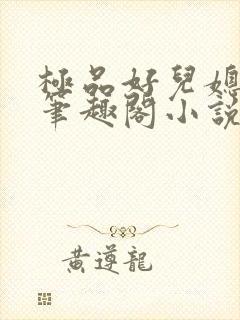 極品好兒媳
筆趣閣小說
黃遵龍